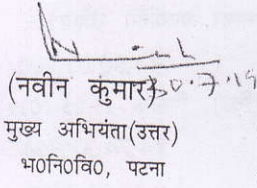 (नवीन कुमार) 30.7.19
मुख्य अभियंता(उत्तर)
भ0नि0वि0, पटना